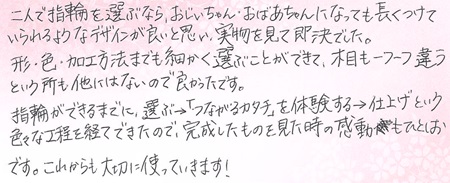 二人で指輪を選ぶなら、おじいちゃん・おばあちゃんになっても長くつけて
いられるようなデザインが良いと思い、実物を見て即決でした。
形・色・加工方法までも細かく選ぶことができて、木目も一つ一つ違う
という所も他にはないので良かったです。
指輪ができるまでに、選ぶ→「つながるカタチ」を体験する→仕上げという
色々な工程を経てできたので、完成したものを見た時の感動もひとしお
です。これからも大切に使っていきます！